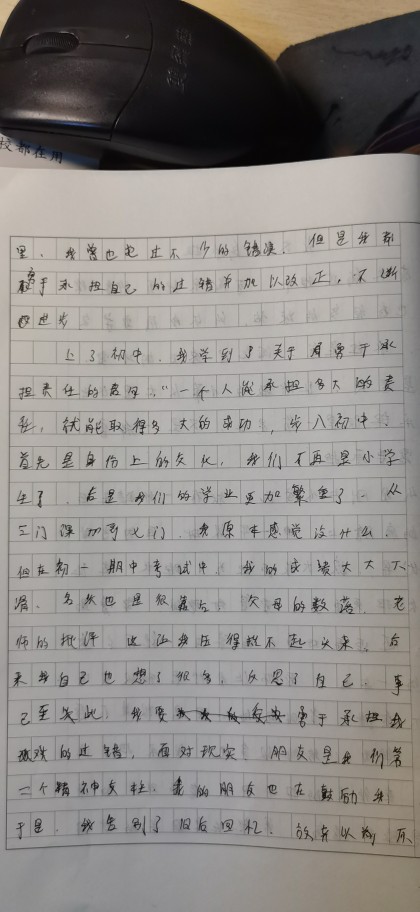 校都在用
里，我曾也犯过不少的错误，但是我都
勇于承担自己的过错并加以改正，不断
进步
上了初中，我学到了关于勇于承
担责任的名句："一个人能承担多大的责
任，就能取得多大的成功，步入初中，
首先是身份上的变化，我们不再是小学
生了，后是我们的学业更加繁重了，从
三门课加到七门，我原本感觉没什么，
但在初一期中考试中，我的成绩大大下
滑，名次也是很落后，父母的数落，老
师的批评，这让我压得抬不起头来，后
来我自己也想了很多，反思了自己，事
已至此，我要勇于承担我
的过错，面对现实，朋友是我们第
二个精神支柱，我的朋友也在鼓励我
于是，我告别了旧后回忆，放弃以前